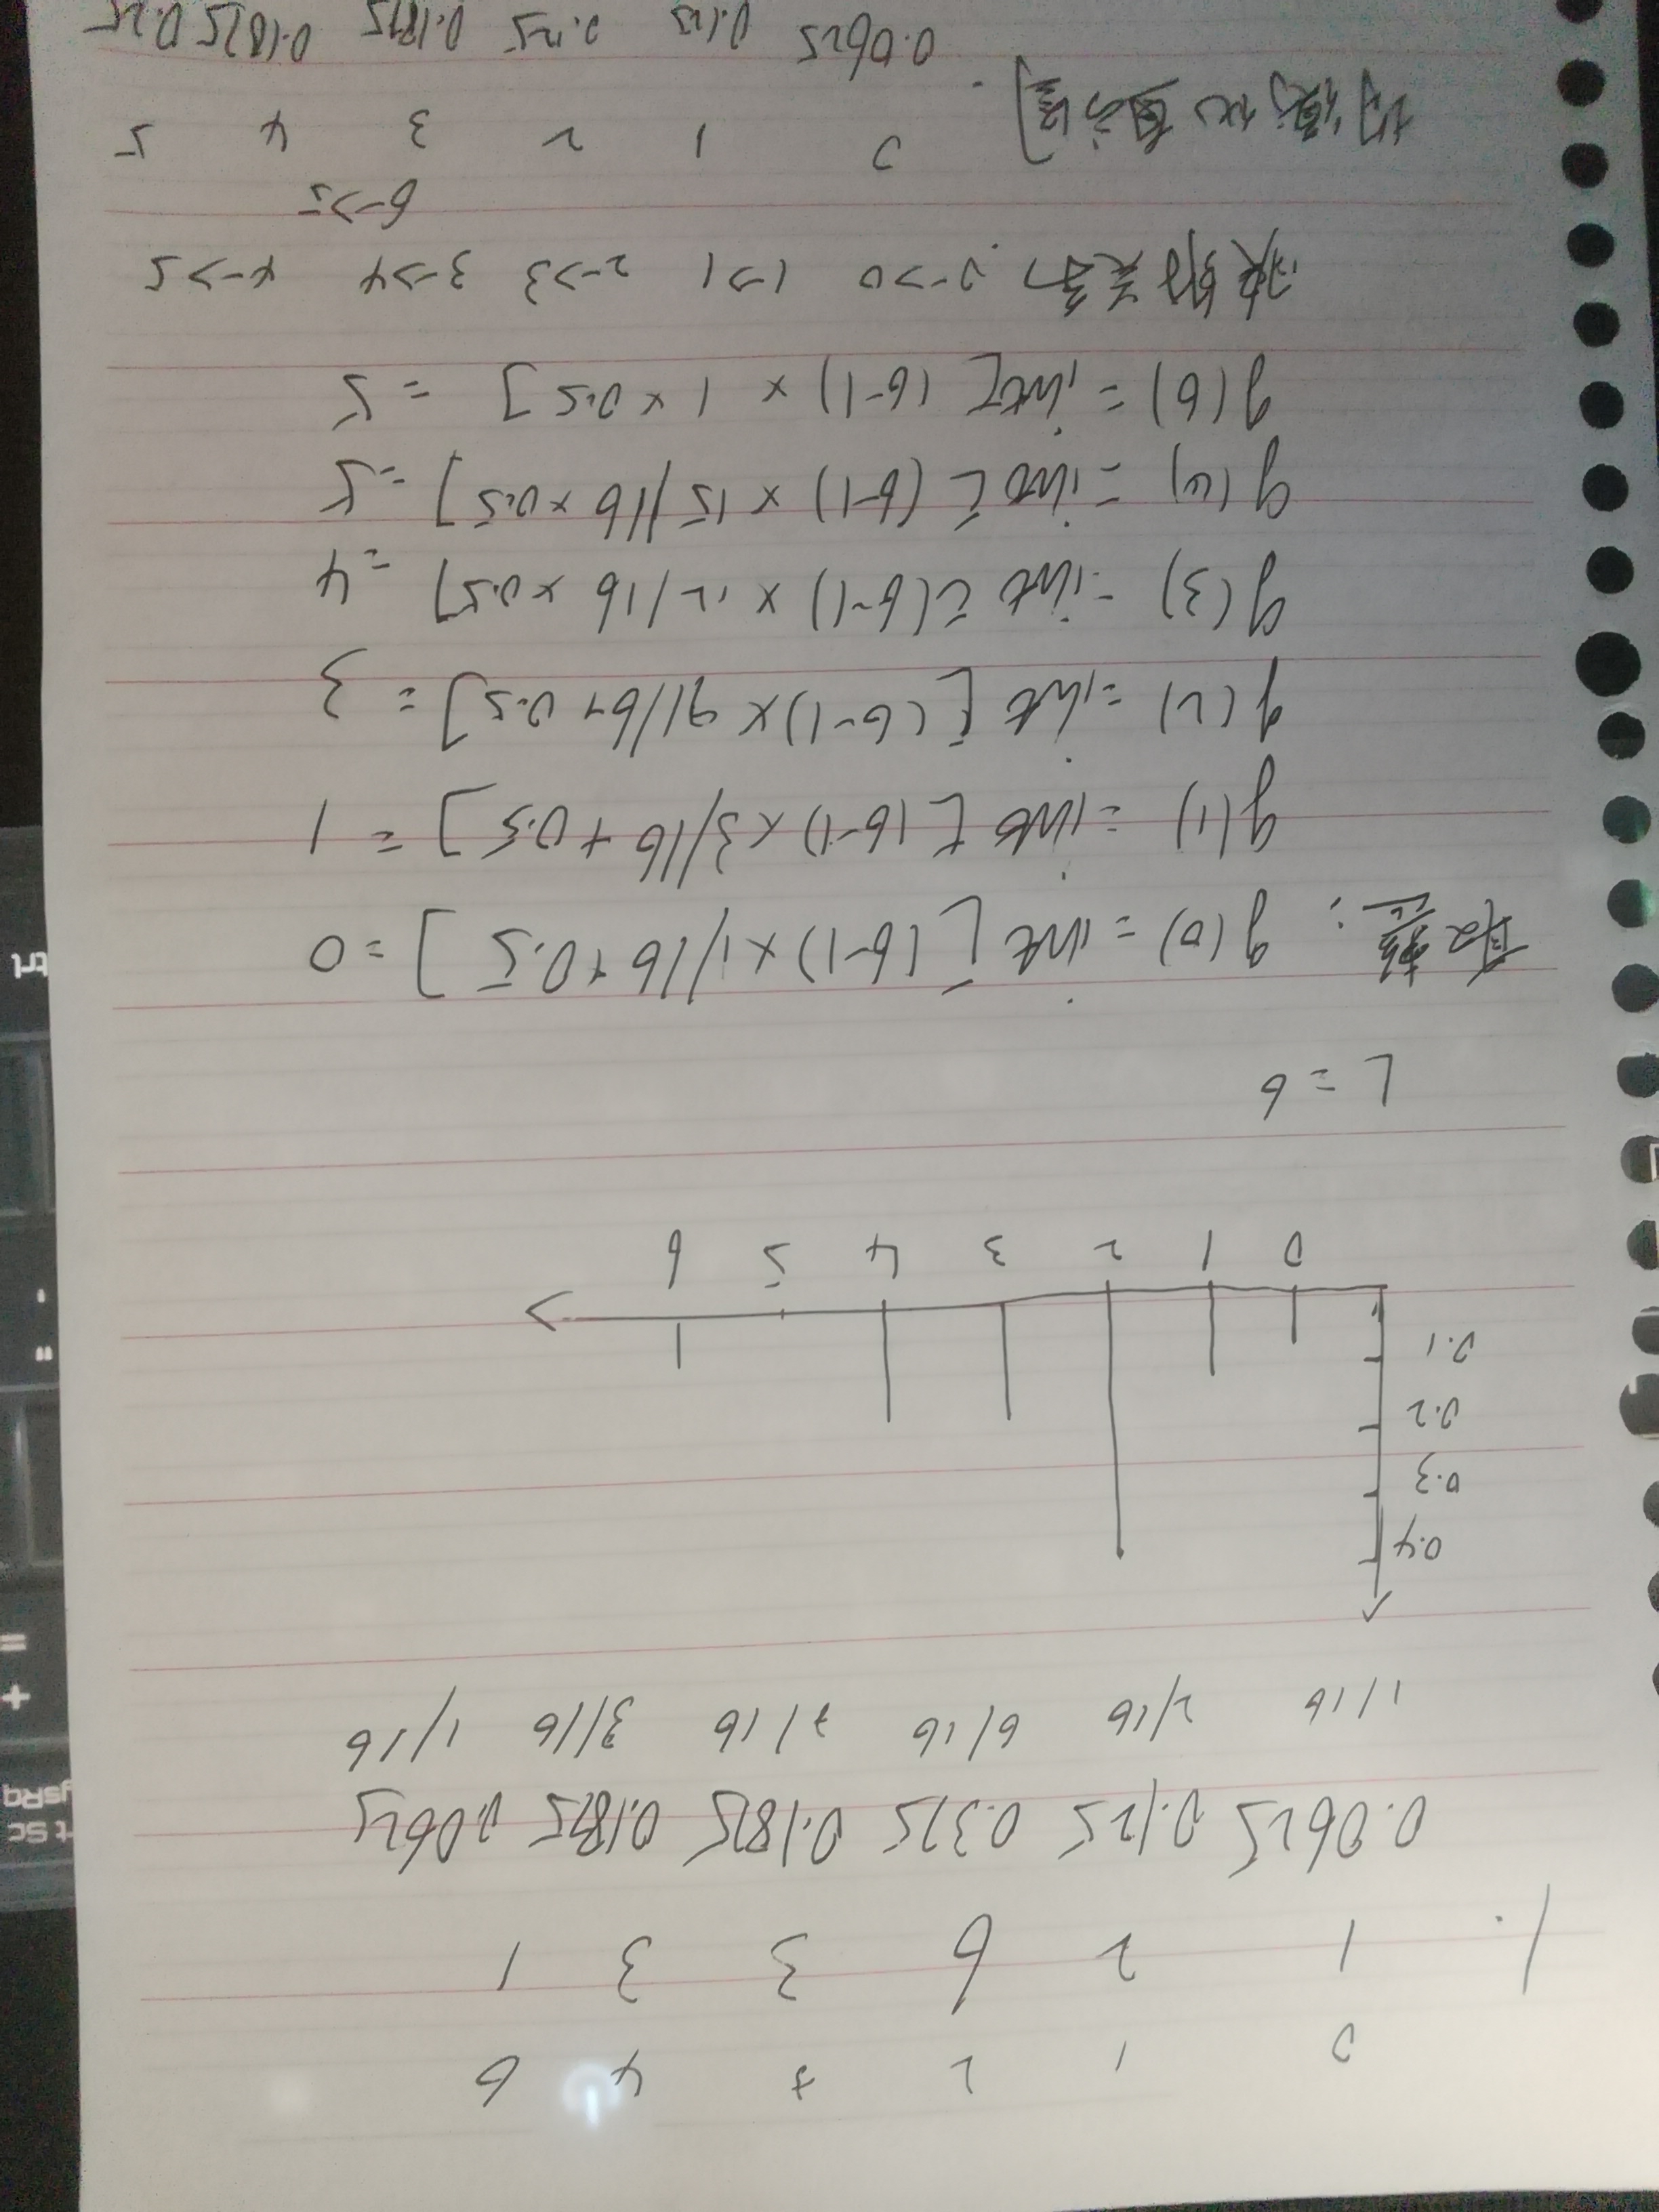 0 1 2 3 4 6
1. 1 2 6 3 3 1
0.0625 0.125 0.375 0.1875 0.1875 0.0625
1/16 2/16 6/16 3/16 3/16 1/16
0.4
0.3
0.2
0.1
0 1 2 3 4 5 6
L = 6
取整: g(0) = int [(6-1)×1/16+0.5] = 0
g(1) = int [(6-1)×3/16+0.5] = 1
g(2) = int [(6-1)×9/16+0.5] = 3
g(3) = int [(6-1)×12/16×0.5] = 4
g(4) = int [(6-1)×15/16×0.5] = 5
g(6) = int [(6-1)×1×0.5] = 5
映射关系 0->0 1->1 2->3 3->4 4->5
6->5
均衡化直方图 0 1 2 3 4 5
0.0625 0.125 0.125 0.1875 0.1875 0.25